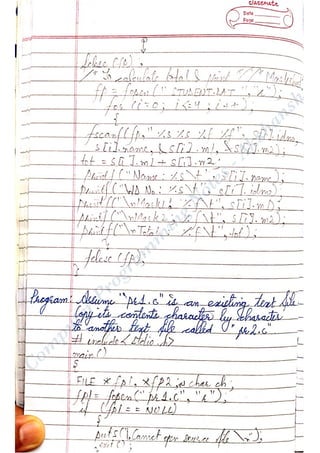 classmate
Date
Page
fclose (fp);
/* To calculate total & print */
fp = fopen(" STUDENT.DAT ", "r");
for (i=0; i<=4; i++);
{
fscanf(fp," %s %s %f %f", s[i].idno,
s[i].name, &s[i].m1, &s[i].m2);
tot = s[i].m1 + s[i].m2;
printf("Name: %s\t", s[i].name);
printf("ID No: %s\t", s[i].idno)
printf("\nMark1: %f\t", s[i].m1)
printf("\nMark2: %f\t", s[i].m2)
printf("\nTotal: %f\t", tot);
}
fclose (fp);
}
Program: Assume "pr1.c" is an existing text file
Copy its contents character by character
to another text file called "pr2.c"
# include <stdio.h>
main()
{
FILE *fp1, *fp2; char ch;
fp1 = fopen("pr1.c", "r");
if (fp1 == NULL)
{
puts("Cannot open source file \n");
exit();